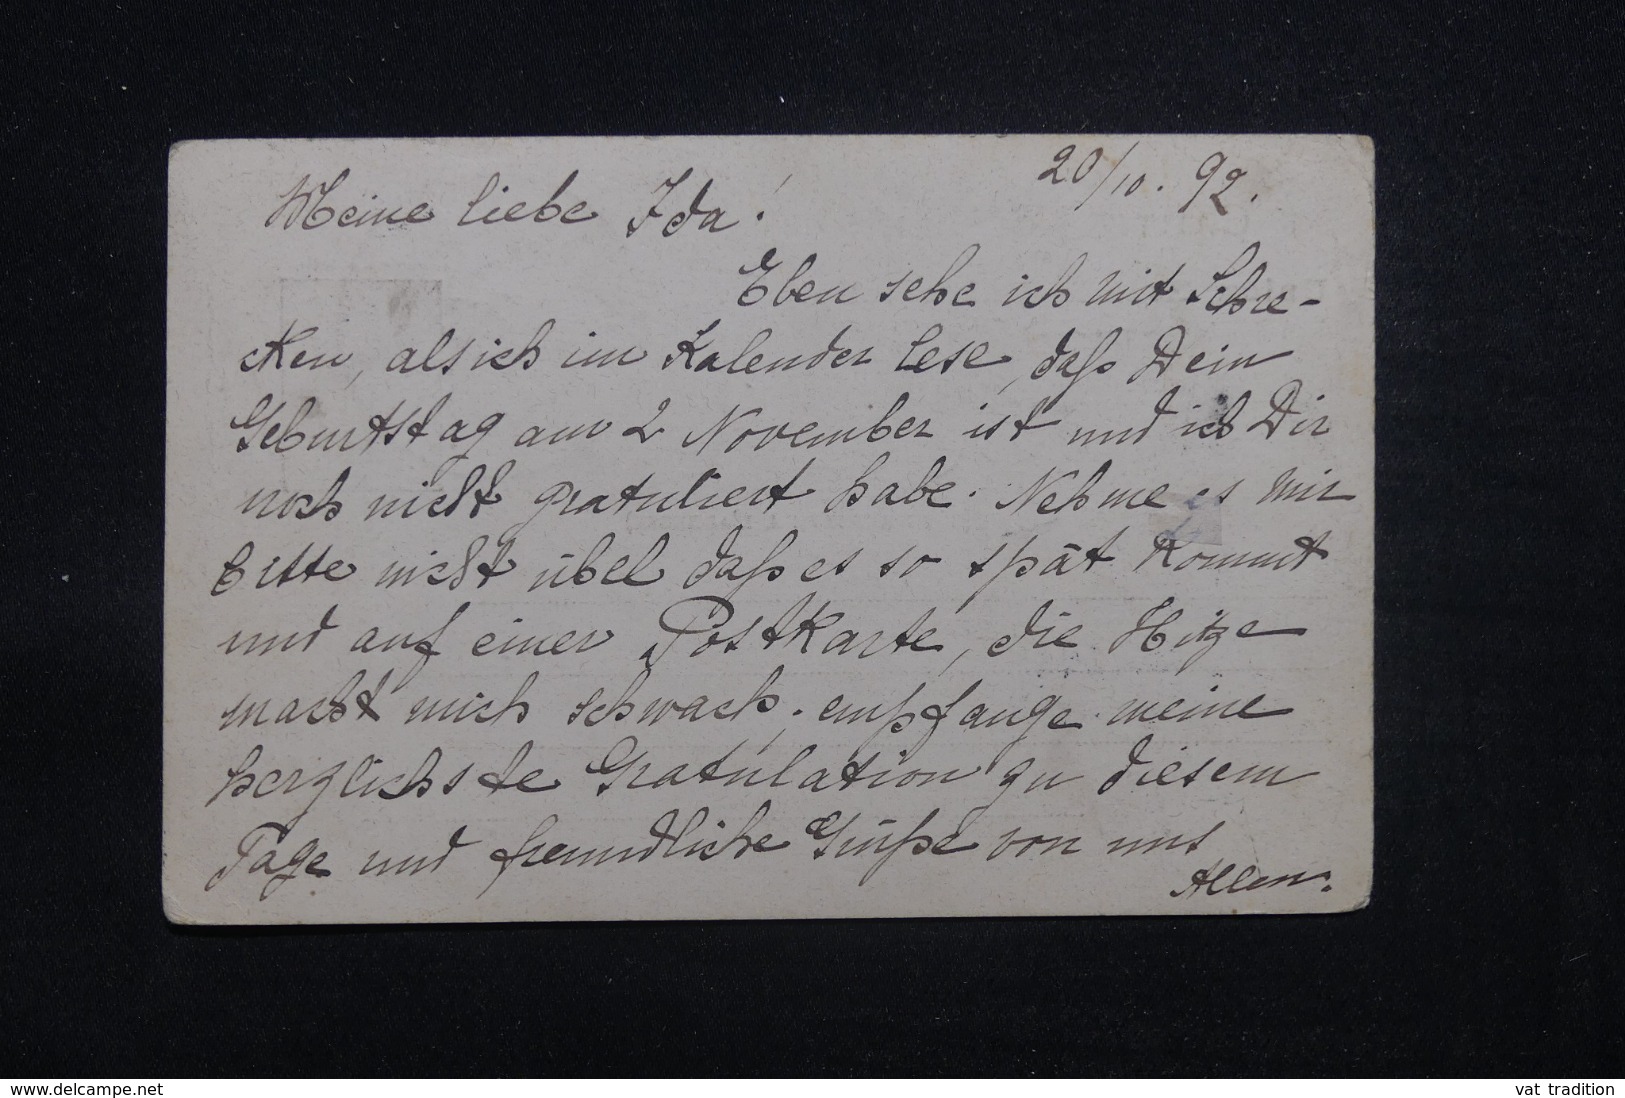 20/10. 92.
Meine liebe Ida!
Eben sehe ich mit Schre-
cken, als ich im Kalender lese, daß Dein
Geburtstag am 2 November ist und ich Dir
noch nicht gratuliert habe. Nehme es mir
bitte nicht übel daß es so spät kommt
und auf einer Postkarte, die Hitze
macht mich schwach, empfange meine
herzlichste Gratulation zu diesem
Tage und freundliche Grüße von uns
Allen.
www.delcampe.net
vat_tradition